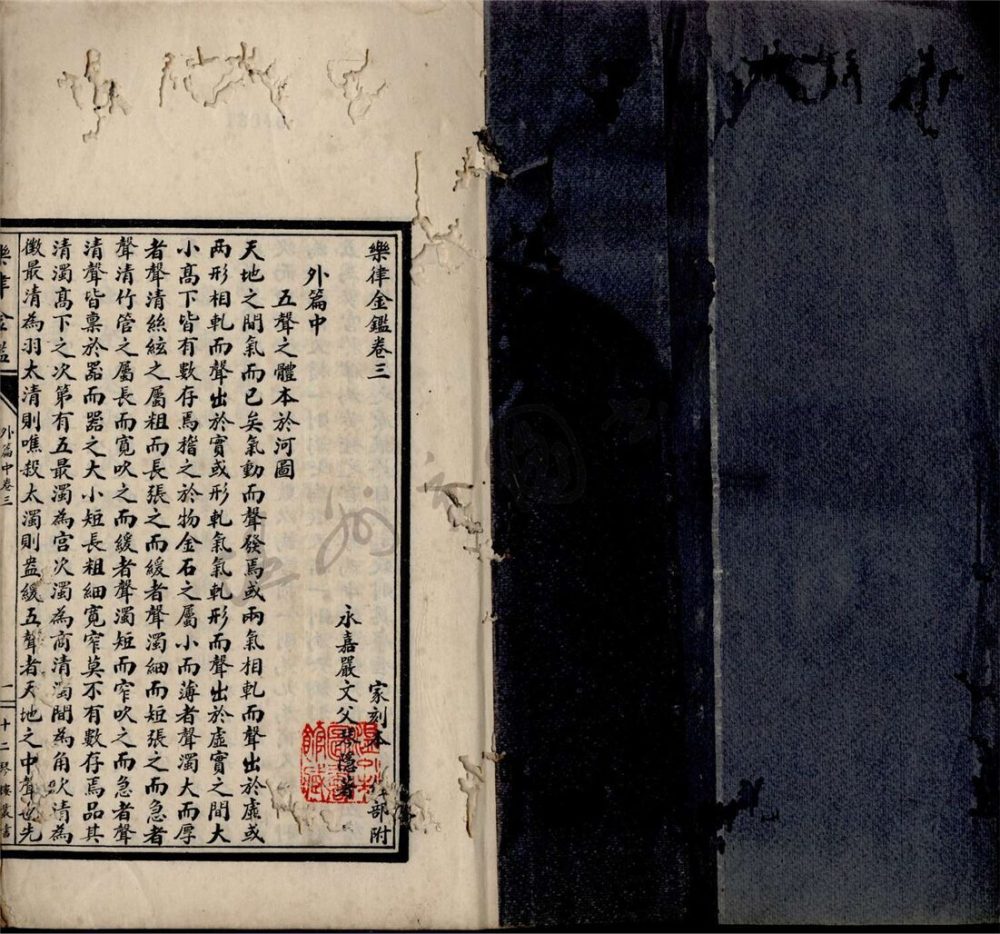 樂律金鑑卷三
家刻本 部附
外篇中
永嘉嚴文父琴隱著
五聲之體本於河圖
天地之間氣而已矣氣動而聲發焉或兩氣相軋而聲出於虛或
兩形相軋而聲出於實或形軋氣氣軋形而聲出於虛實之間大
小高下皆有數存焉稽之於物金石之屬小而薄者聲濁大而厚
者聲清絲絃之屬粗而長張之而緩者聲濁細而短張之而急者
聲清竹管之屬長而寬吹之而緩者聲濁短而窄吹之而急者聲
清聲皆稟於器而器之大小短長粗細寬窄莫不有數存焉品其
清濁高下之次第有五最濁為宮次濁為商清濁間為角次清為
徵最清為羽太清則噍殺太濁則盎緩五聲者天地之中聲也先
樂律金鑑
外篇中卷三
一
十二琴樓叢書